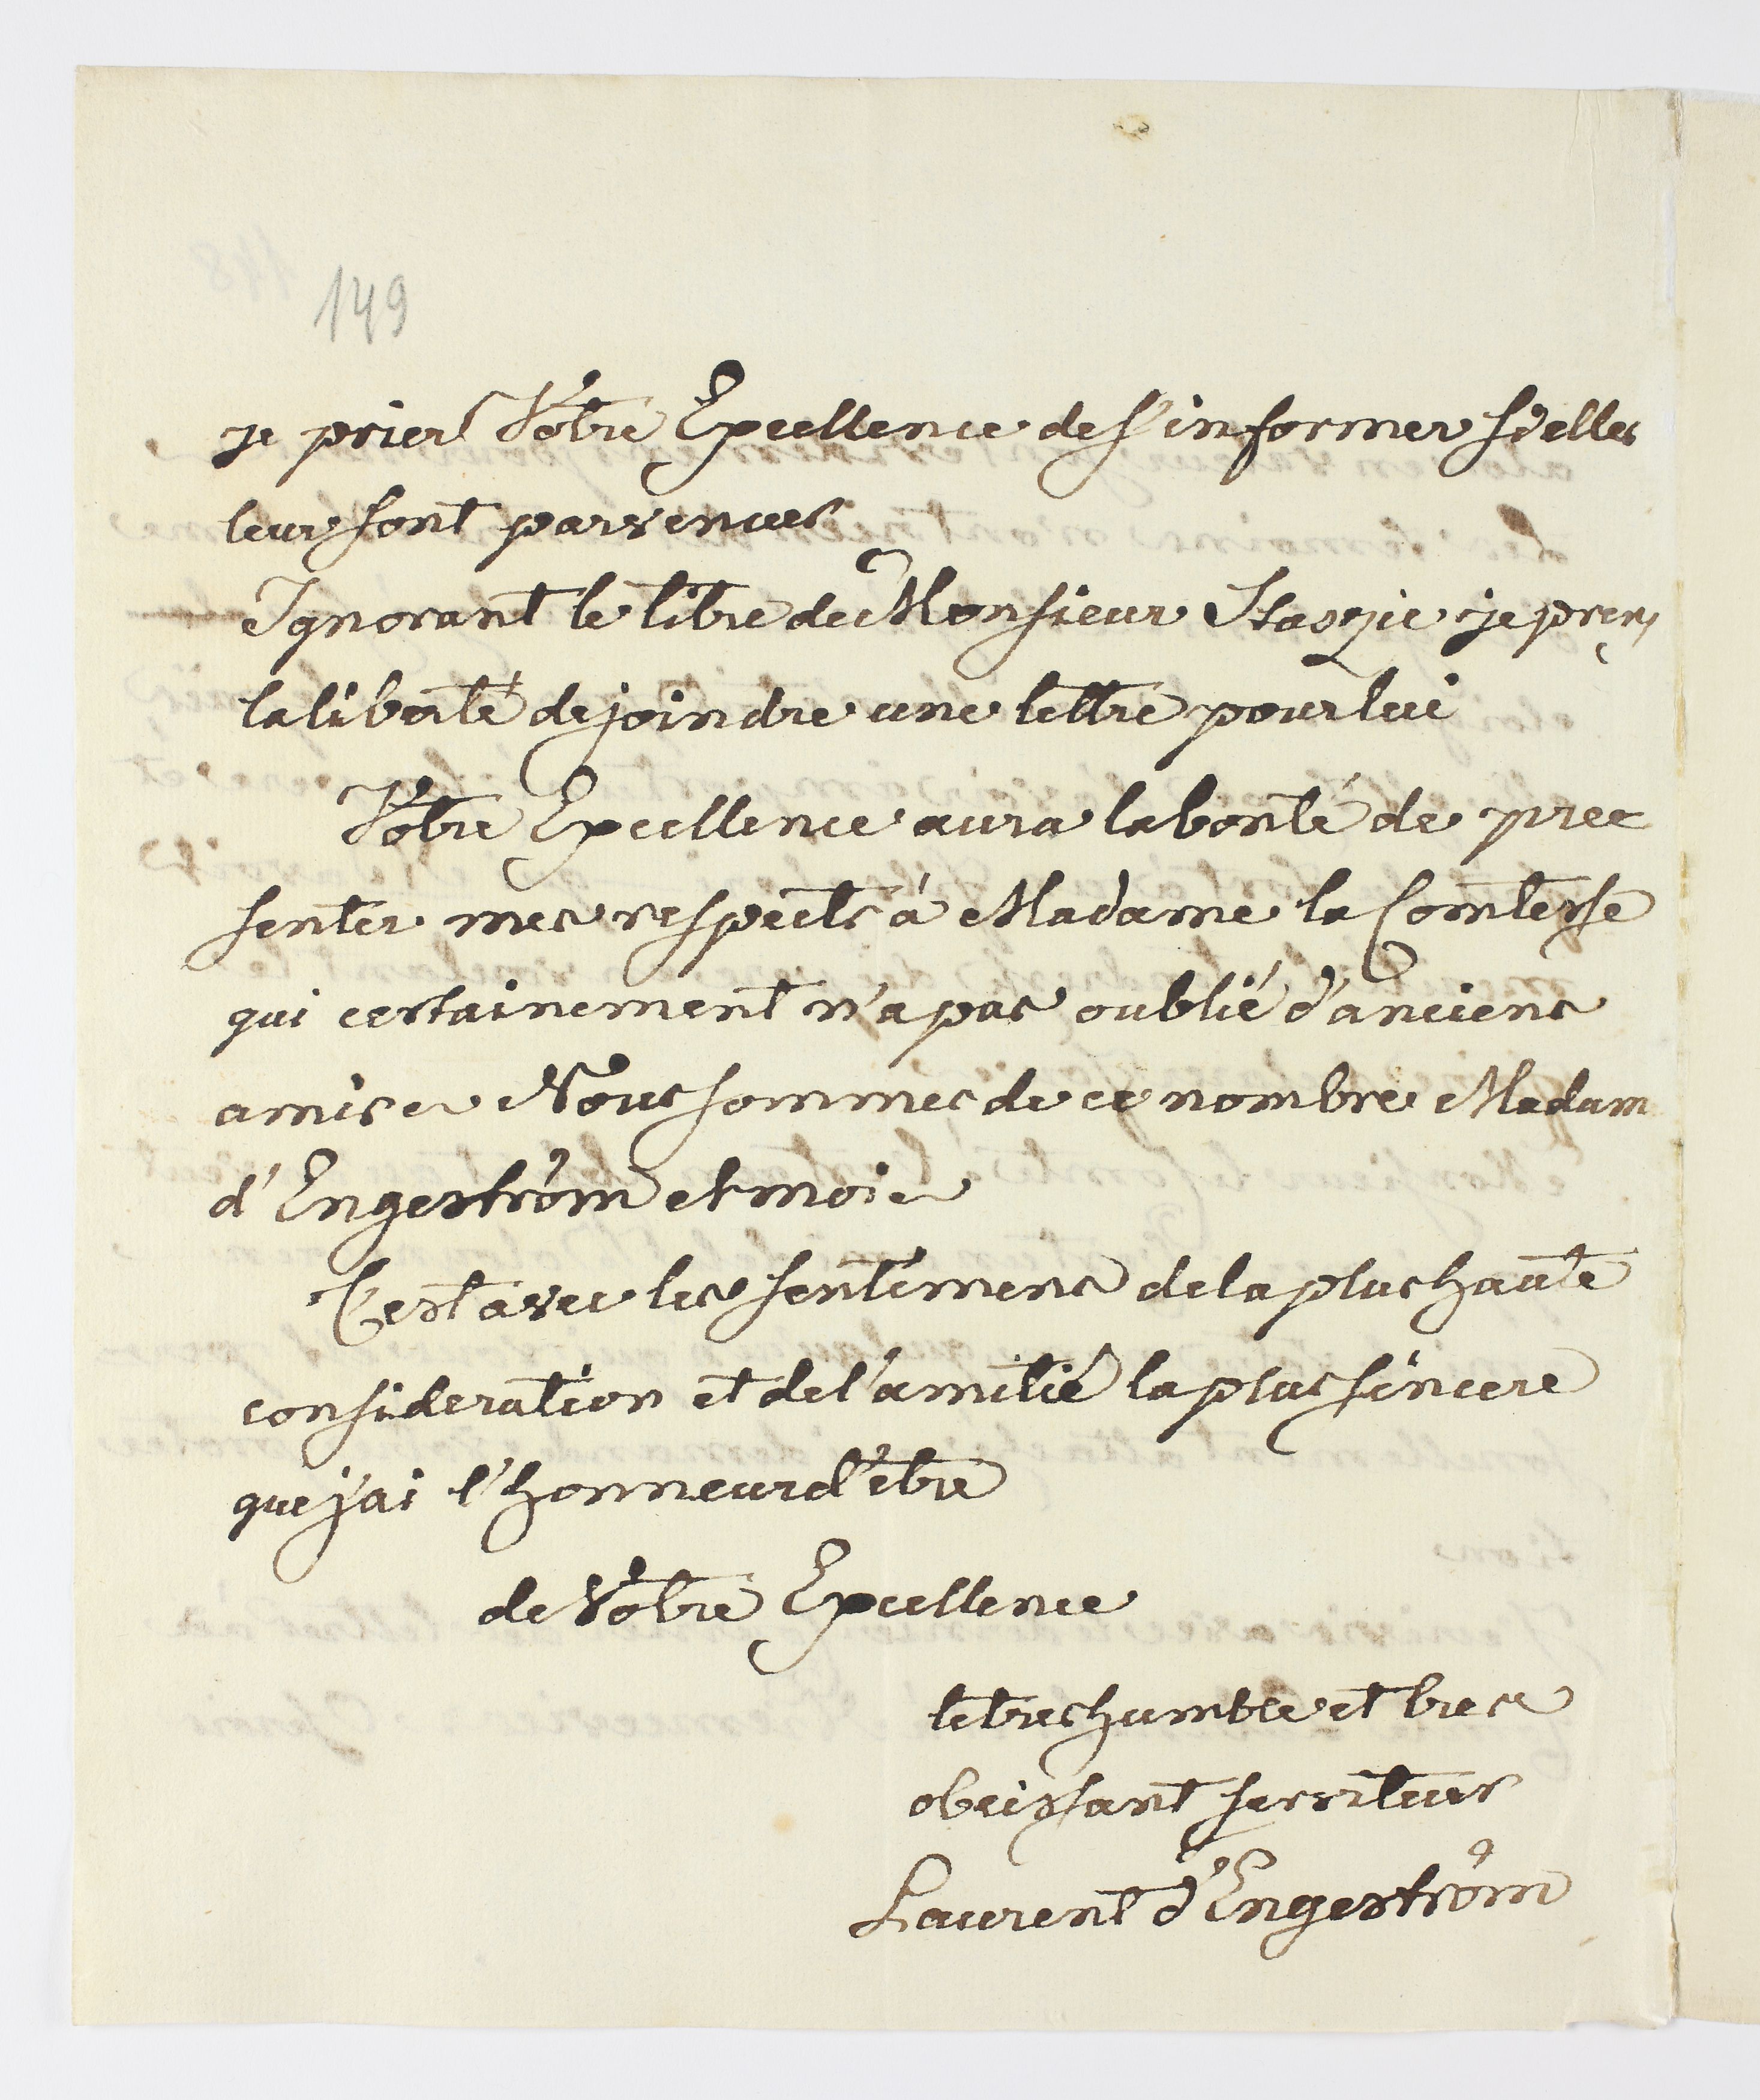 149
je prier Votre Excellence de s'informer si elles
leur sont parvenues
Ignorant le titre de Monsieur Staszic je prens
la liberté de joindre une lettre pour lui
Votre Excellence aura la bonté de pre
senter mes respects à Madame la Comtesse
qui certainement n'a pas oublié d'anciens
amis Nous sommes de ce nombre Madam
d'Engeström et moi
C'est avec les sentimens de la plus haute
consideration et de l'amitié la plus sincere
que j'ai l'honneur d'être
de Votre Excellence
le tres humble et tres
obeissant serviteur
Laurent d'Engeström